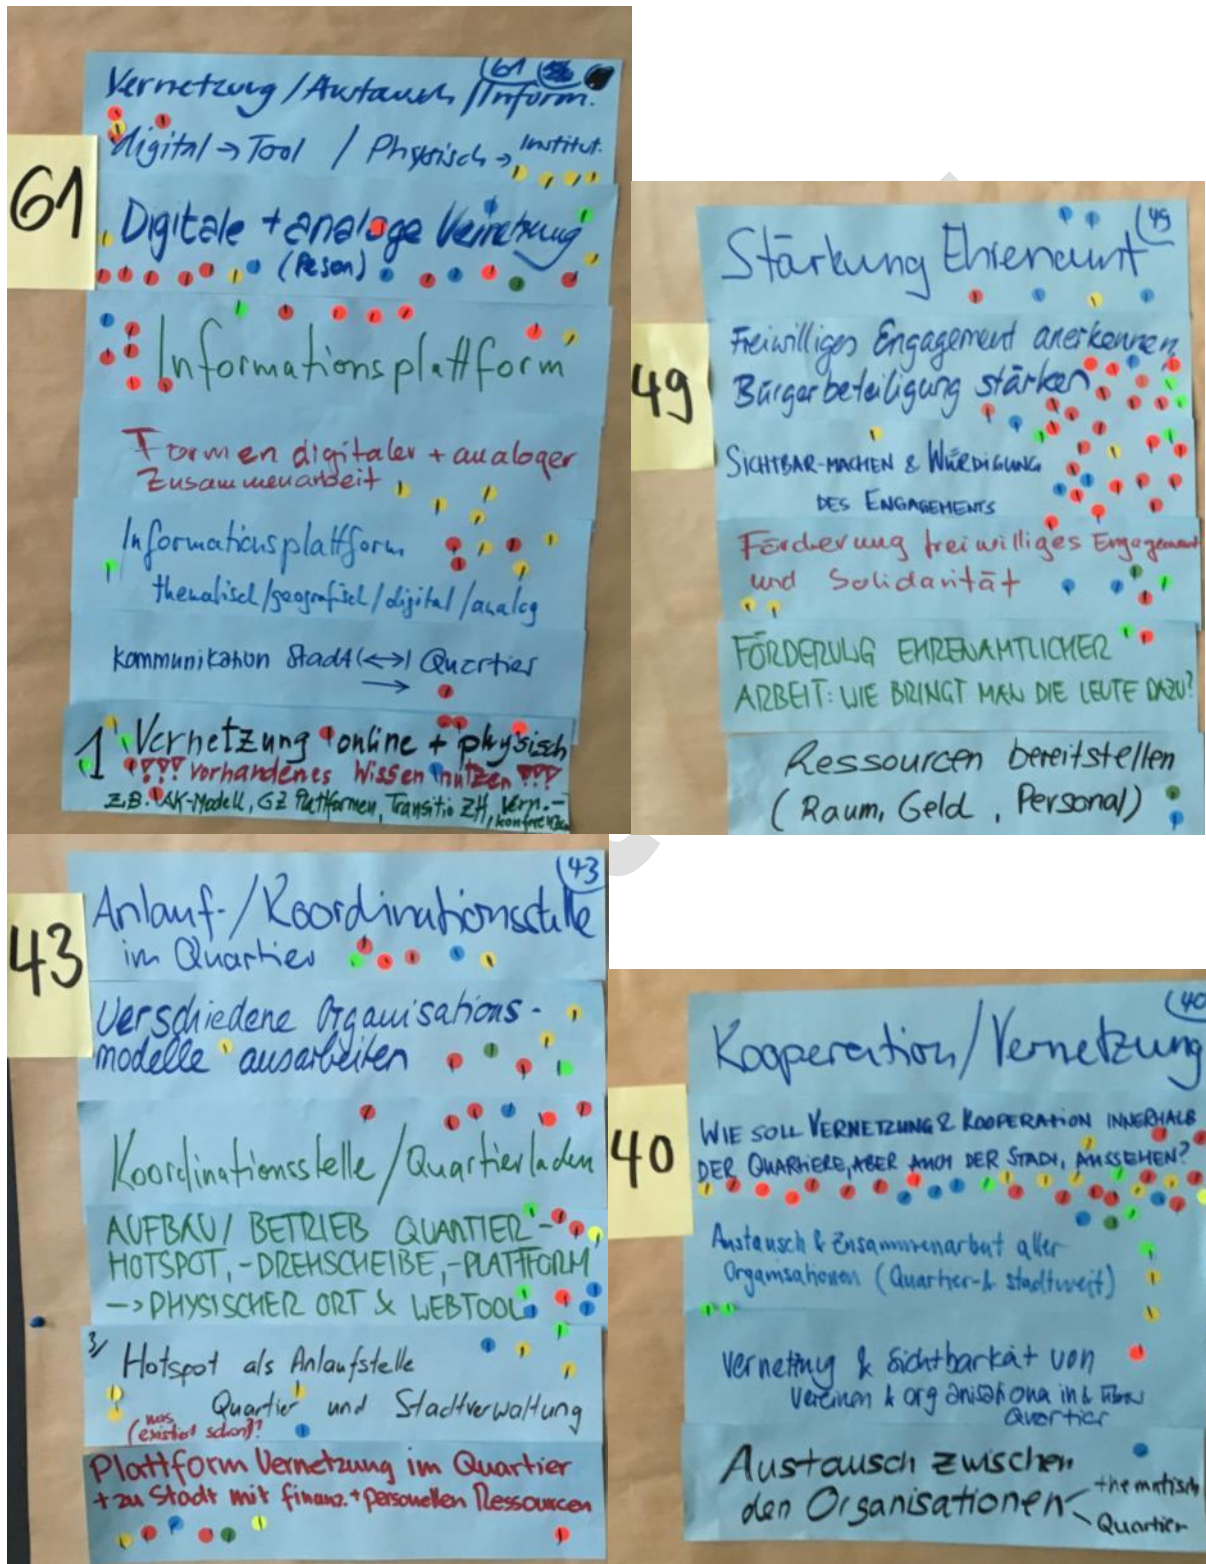 61
Vernetzung / Austausch / Inform.
61
digital → Tool / Physisch → Institut.
Digitale + analoge Vernetzung
(Peson)
Informationsplattform
Formen digitaler + analoger
Zusammenarbeit
Informationsplattform
thematisch/geografisch/digital/analog
Kommunikation Stadt (↔) Quartier
→
1 Vernetzung online + physisch
!!! vorhandenes Wissen nutzen !!!
Z.B. AK-Modell, GZ Plattformen, Transitio ZH, Vern.-
konferenzen
49
49
Stärkung Ehrenamt
Freiwilliges Engagement anerkennen,
Bürgerbeteiligung stärken
SICHTBAR-MACHEN & WÜRDIGUNG
DES ENGAGEMENTS
Förderung freiwilliges Engagement
und Solidarität
FÖRDERUNG EHRENAMTLICHER
ARBEIT: WIE BRINGT MAN DIE LEUTE DAZU?
Ressourcen bereitstellen
(Raum, Geld, Personal)
43
43
Anlauf-/Koordinationsstelle
im Quartier
Verschiedene Organisations-
modelle ausarbeiten
Koordinationsstelle/Quartierladen
AUFBAU/BETRIEB QUARTIER-
HOTSPOT, -DREHSCHEIBE, -PLATTFORM
→ PHYSISCHER ORT & WEBTOOL
3/ Hotspot als Anlaufstelle
Quartier und Stadtverwaltung
(was
existiert schon)?
Plattform Vernetzung im Quartier
+ zu Stadt mit finanz. + personellen Ressourcen
40
40
Kooperation/Vernetzung
WIE SOLL VERNETZUNG & KOOPERATION INNERHALB
DER QUARTIERE, ABER AUCH DER STADT, AUSSEHEN?
Austausch & Zusammenarbeit aller
Organisationen (Quartier- & stadtweit)
Vernetzung & Sichtbarkeit von
Vereinen & Organisationen in &
Quartier
Austausch zwischen
den Organisationen
thematisch
Quartier